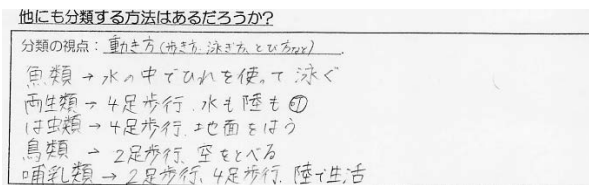 他にも分類する方法はあるだろうか?
分類の視点:動き方(歩き方、泳ぎ方、とび方など)
魚類→水の中でひれを使って泳ぐ
両生類→4足歩行、水も陸も
は虫類→4足歩行、地面をはう
鳥類→2足歩行、空をとべる
哺乳類→2足歩行、4足歩行、陸で生活